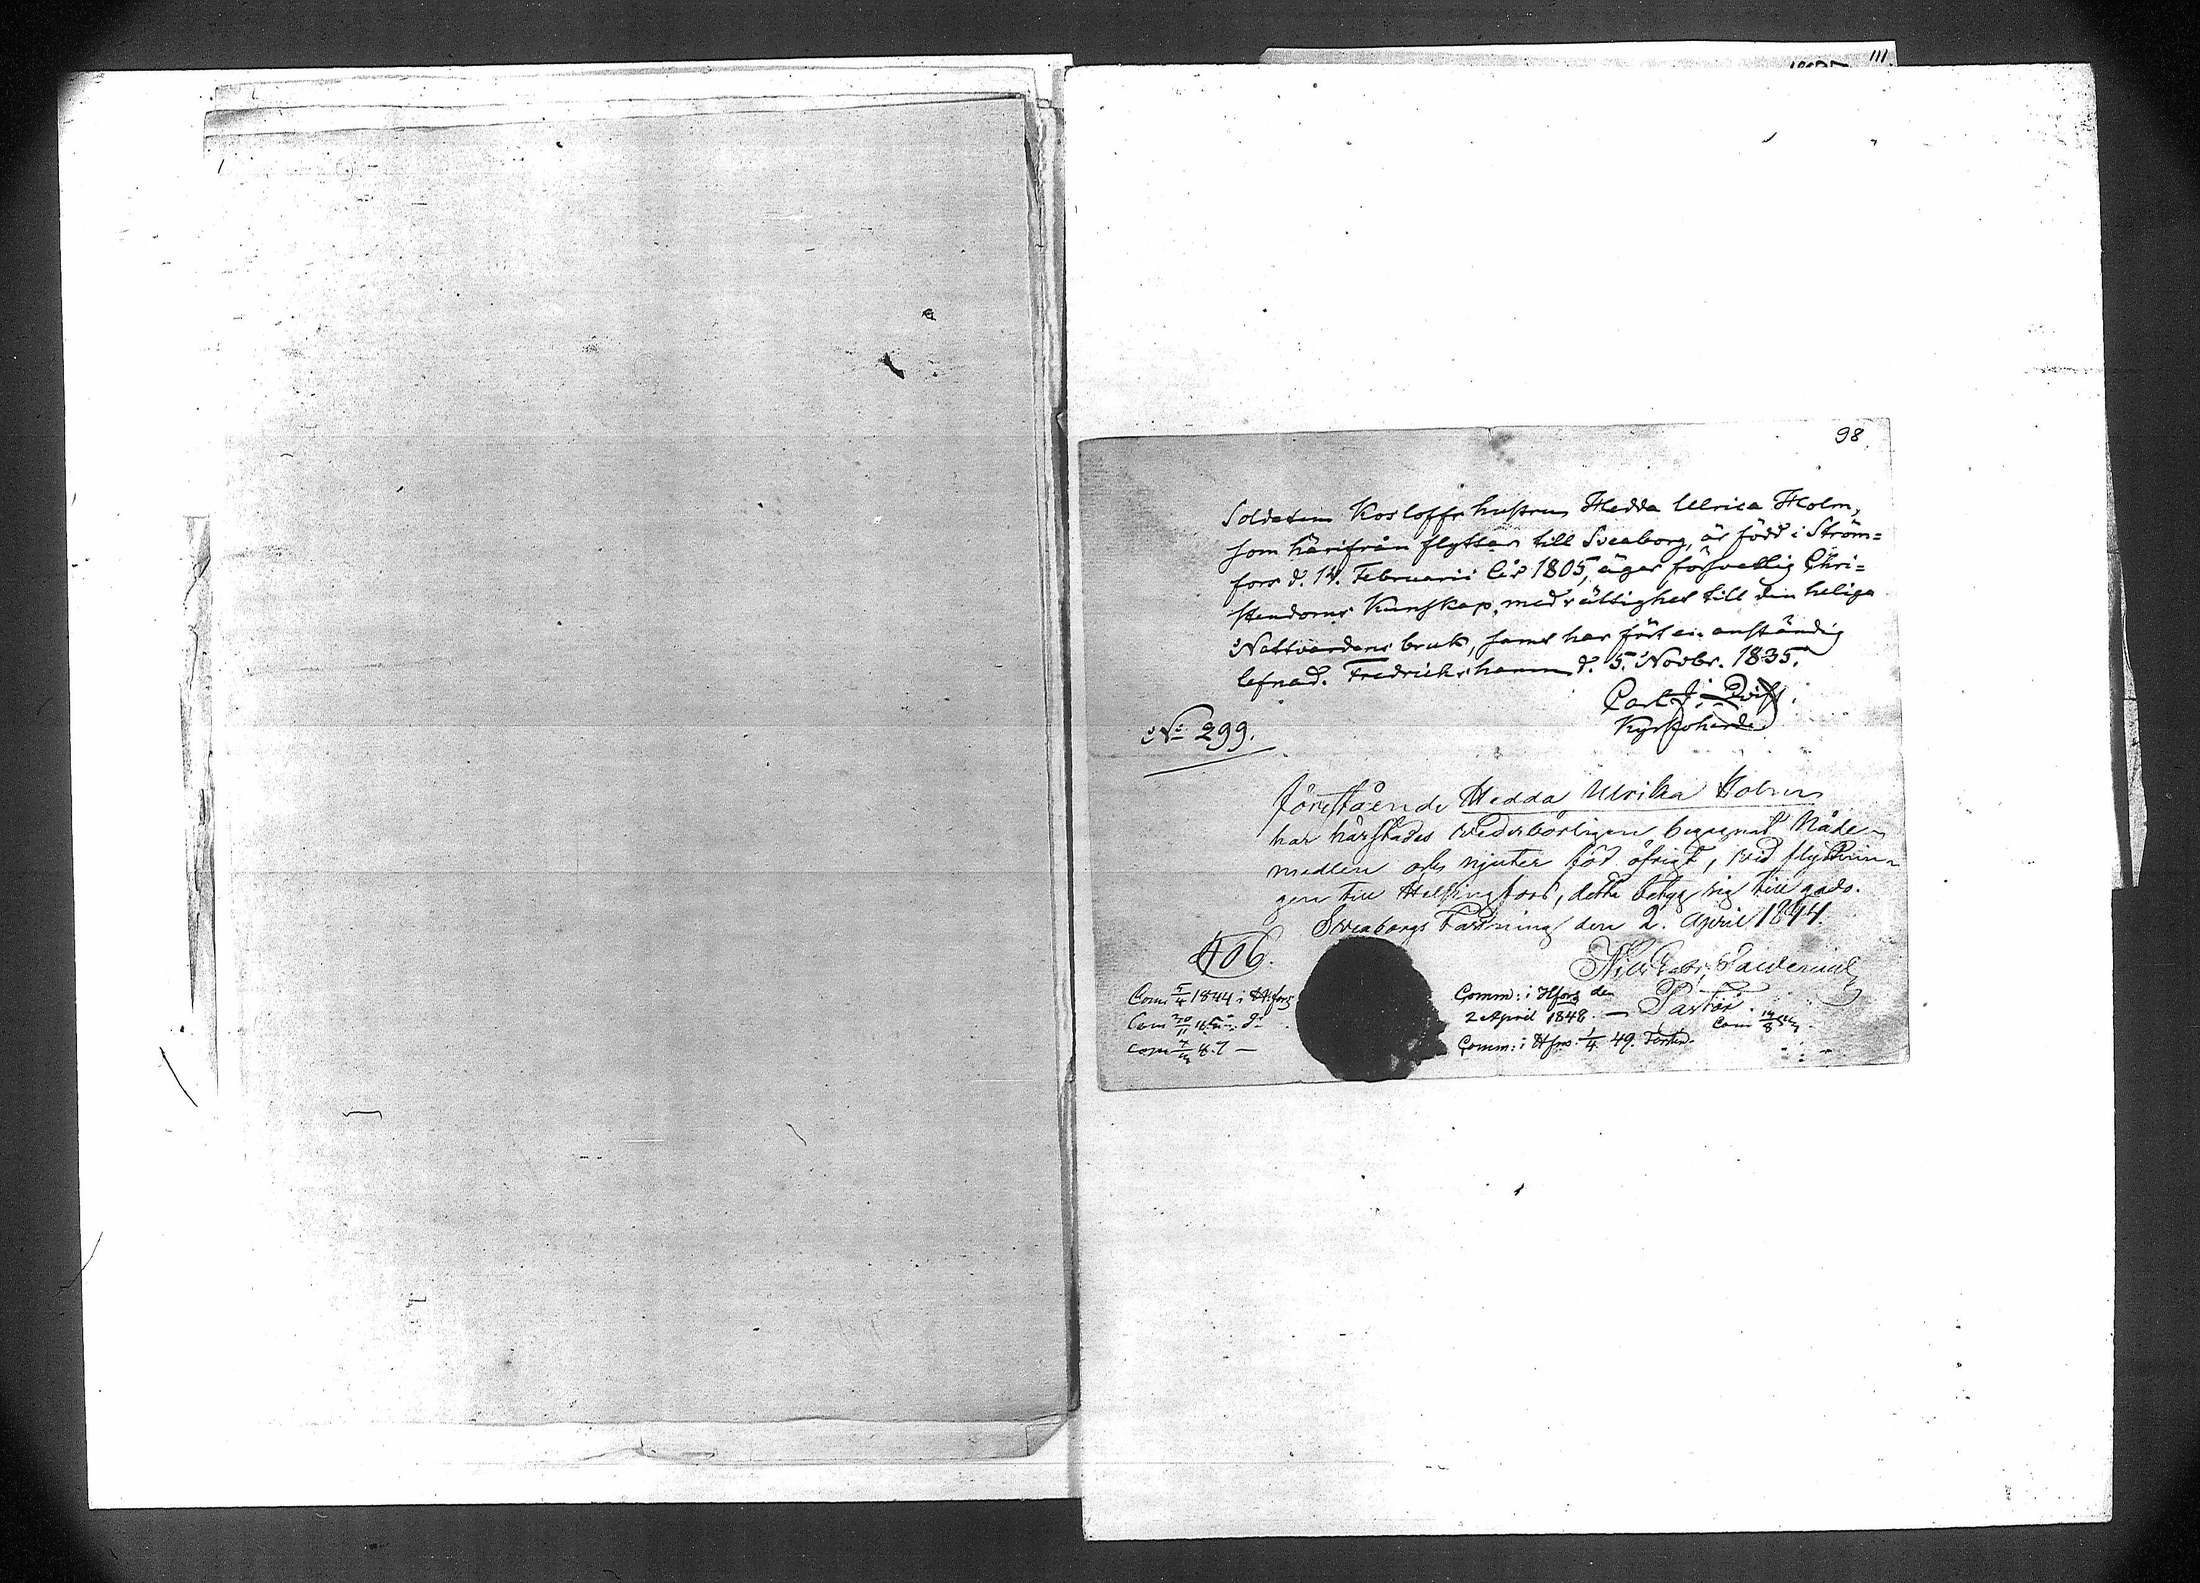 111
98
Soldaten Kosloffs hustru Hedda Ulrica Holm,
som härifrån flyttar till Sveaborg, är född i Ström=
fors d. 14. Februarii år 1805, äger försvarlig Chri=
stendoms Kunskap, med rättighet till den heliga
Nattvardens bruk, samt har fört en anständig
lefnad. Fredrichshamn d. 5. Novbr. 1835.
Carl J.
Kyrkoherde
No 299.
Förestående Hedda Ulrika Holm
har härstädes vederbörligen begagnat Nåde-
medlen och njuter för öfrigt, vid flyttnin-
gen till Helsingfors, detta betyg sig till godo.
Sveaborgs Fästning den 2. April 1844.
406.
Nils Gabr.
Pastor.
Com 5/4 1844 i H:fors
Comm: i Hfors den
2 April 1848. —
Com
Com
Comm: i Hfors 1/4 49.